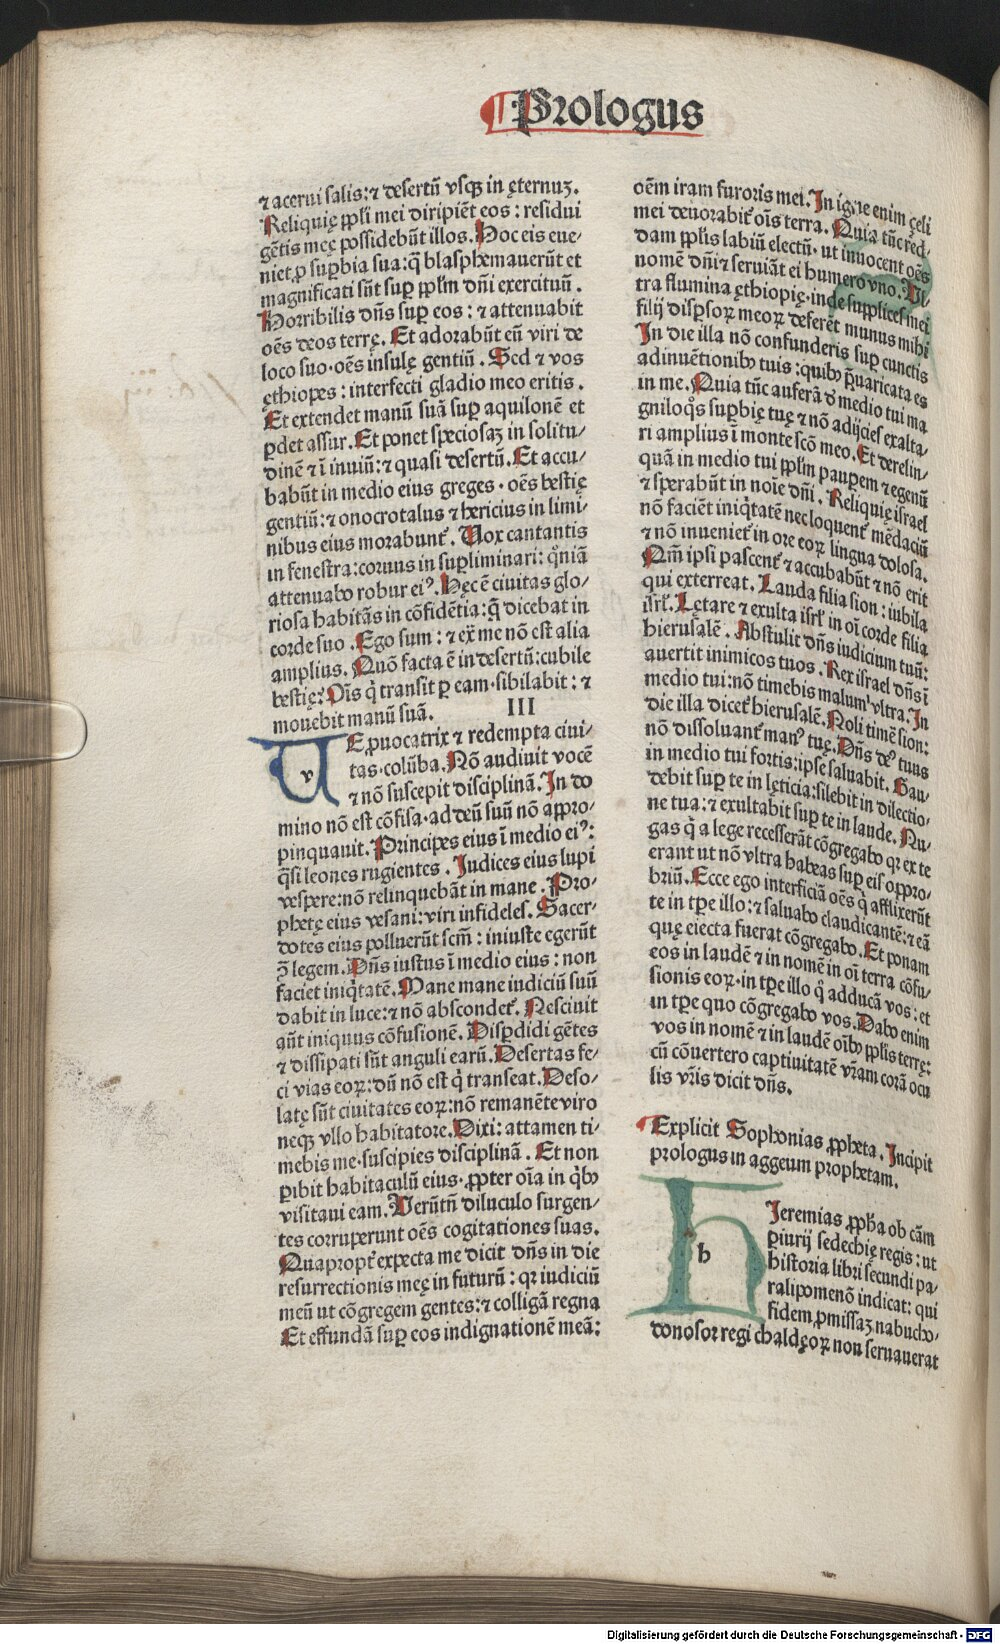 Prologus
⁊ acerui salis:⁊ desertū vsq; in ęternuʒ.
Reliquię ppl̄i mei diripiēt eos : residui
gētis męę possidebūt illos. Hoc eis eue-
niet ꝓ suꝑbia sua:q̄ blasphemauerūt et
magnificati sūt suꝑ ppl̄m dn̄i exercituū.
Horribilis dn̄s suꝑ eos : ⁊ attenuabit
oēs deos terrę. Et adorabūt eū viri de
loco suo·oēs insulę gentiū. Sed ⁊ vos
ęthiopes : interfecti gladio meo eritis.
Et extendet manū suā suꝑ aquilonē et
ꝑdet assur. Et ponet speciosaʒ in solitu-
dinē ⁊ ī inuiū: ⁊ quasi desertū. Et accu-
babūt in medio eius greges · oēs bestię
gentiū:⁊ onocrotalus ⁊ hericius in limi-
nibus eius morabunt᷑. Uox cantantis
in fenestra:coruus in suꝑliminari: qm̄iā
attenuabo robur eiꝰ. Hęc ē ciuitas glo-
riosa habitās in cōfidētia:q̄ dicebat in
corde suo . Ego sum : ⁊ ex̄ me nō est alia
amplius. Quō facta ē in desertū:cubile
bestię: Oīs q̇ transit ꝑ eam·sibilabit : ⁊
mouebit manū suā.
III
v
UE ꝓuocatrix ⁊ redempta ciui-
tas·colūba. Nō audiuit vocē
⁊ nō suscepit disciplinā. In do
mino nō est cōfisa·ad deū suū nō appro-
pinquauit. Principes eius ī medio eiꝰ:
q̄si leones rugientes . Judices eius lupi
vespere:nō relinquebāt in mane . Pro-
phetę eius vesani:viri infideles. Sacer-
dotes eius polluerūt scm̄ : iniuste egerūt
ꝯ̄ legem. Dn̄s iustus ī medio eius : non
faciet iniq̇tatē. Mane mane iudiciū suū
dabit in luce:⁊ nō abscondet᷑. Nesciuit
aūt iniquus cōfusionē. Disꝑdidi gētes
⁊ dissipati sūt anguli earū. Desertas fe-
ci vias eoꝝ: dū nō est q̇ transeat. Deso-
latę sūt ciuitates eoꝝ:nō remanēte viro
neq; vllo habitatore. Dixi: attamen ti-
mebis me·suscipies disciplinā . Et non
ꝑibit habitaculū eius·ꝓpter oīa in q̇bꝰ
visitaui eam. Uerūtn̄ diluculo surgen-
tes corruperunt oēs cogitationes suas.
Quapropt᷑ expecta me dicit dn̄s in die
resurrectionis męę in futurū : qꝛ iudiciū
meū ut cōgregem gentes:⁊ colligā regna
Et effundā suꝑ eos indignationē meā:
oēm iram furoris mei. In igne enim ęeli
mei deuorabit᷑ oīs terra. Quia tūc red-
dam ppl̄is labiū electū· ut inuocent oēs
nomē dn̄i ⁊ seruiāt ei humero vno. Ul-
tra flumina ęthiopię·inde supplices mei
filij dispsoꝝ meoꝝ deferēt munus mihi
In die illa nō confunderis suꝑ cunctis
adinuētionibꝰ tuis : quibꝰ p̄uaricata es
in me. Quia tūc auferā d̄ medio tui ma
gniloq̄s suꝑbię tuę ⁊ nō adijcies exalta-
ri amplius ī monte scō meo. Et derelin-
quā in medio tui ppl̄m pauꝑem ⁊ egenū
⁊ sperabūt in noīe dn̄i . Reliquię israel
nō faciēt iniq̇tatē nec loquent᷑ mēdaciū
⁊ nō inueniet᷑ in ore eoꝝ lingua dolosa.
Qm̄ ipsi pascent᷑ ⁊ accubabūt ⁊ nō erit
qui exterreat. Lauda filia sion : iubila
isrl̄. Lętare ⁊ exulta isrl̄ in oī corde filia
hierusalē . Abstulit dn̄s iudicium tuū:
auertit inimicos tuos . Rex israel dn̄s ī
medio tui:nō timebis malum vltra. In
die illa dicet᷑ hierusalē. Noli timē sion:
nō dissoluant᷑ manꝰ tuę. Dn̄s deꝰ tuus
in medio tui fortis:ipse saluabit. Gau-
debit suꝑ te in lęticia:silebit in dilectio-
ne tua: ⁊ exultabit suꝑ te in laude. Nu-
gas q̇ a lege recesserāt cōgregabo qꝛ ex te
erant ut nō vltra habeas suꝑ eis oppro-
briū. Ecce ego interficiā oēs q̇ afflixerūt
te in tꝑe illo: ⁊ saluabo claudicantē:⁊ eā
quę eiecta fuerat cōgregabo. Et ponam
eos in laudē ⁊ in nomē in oī terra cōfu-
sionis eoꝝ·in tꝑe illo q̊ adducā vos: et
in tꝑe quo cōgregabo vos. Dabo enim
vos in nomē ⁊ in laudē oībꝰ ppl̄is terrę:
cū cōuertero captiuitatē vr̄am corā ocu
lis vr̄is dicit dn̄s.
Explicit Sophonias ꝓpheta. Incipit
prologus in aggeum prophetam.
h
HJeremias ꝓpha ob cām
ꝑiurij sedechię regis : ut
historia libri secundi pa-
ralipomenō indicat: qui
fidem ꝓmissaʒ nabucho-
donosor regi chaldęoꝝ non seruauerat
Digitalisierung gefördert durch die Deutsche Forschungsgemeinschaft - DFG